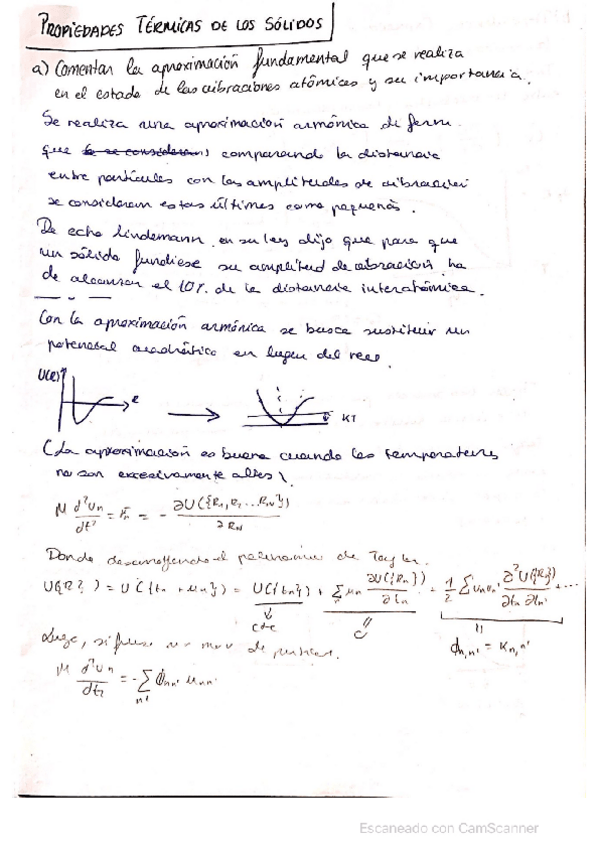 PROPIEDADES TÉRMICAS DE LOS SÓLIDOS
a) Comentar la aproximación fundamental que se realiza
en el estado de las vibraciones atómicas y su importancia.
Se realiza una aproximación armónica de form
que comparando la distancia
entre partículas con las amplitudes de vibración
se consideran estas últimas como pequeñas.
De echo Lindemann en su ley dijo que para que
un sólido fundiese su amplitud de vibración ha
de alcanzar el 10% de la distancia interatómica.
Con la aproximación armónica se busca sustituir un
potencial cuadrático en lugar del real
U(R) R KT
(La aproximación es buena cuando las temperaturas
no son excesivamente altas).
M d²Un/dt² = Fn = - ∂U({Rn, R2 ... RN})/∂RN
Donde desarrollando el polinomio de Taylor.
U({R}) = U({tn + un}) = U({tn}) + Σ un ∂U({Rn})/∂tn + 1/2 Σ un un' ∂²U({R})/∂tn ∂tn' + ...
cte
ϕn,n' = Kn,n'
Luego, si fuese un mov de
M d²Un/dt² = - Σn' ϕnn' unn'
Escaneado con CamScanner